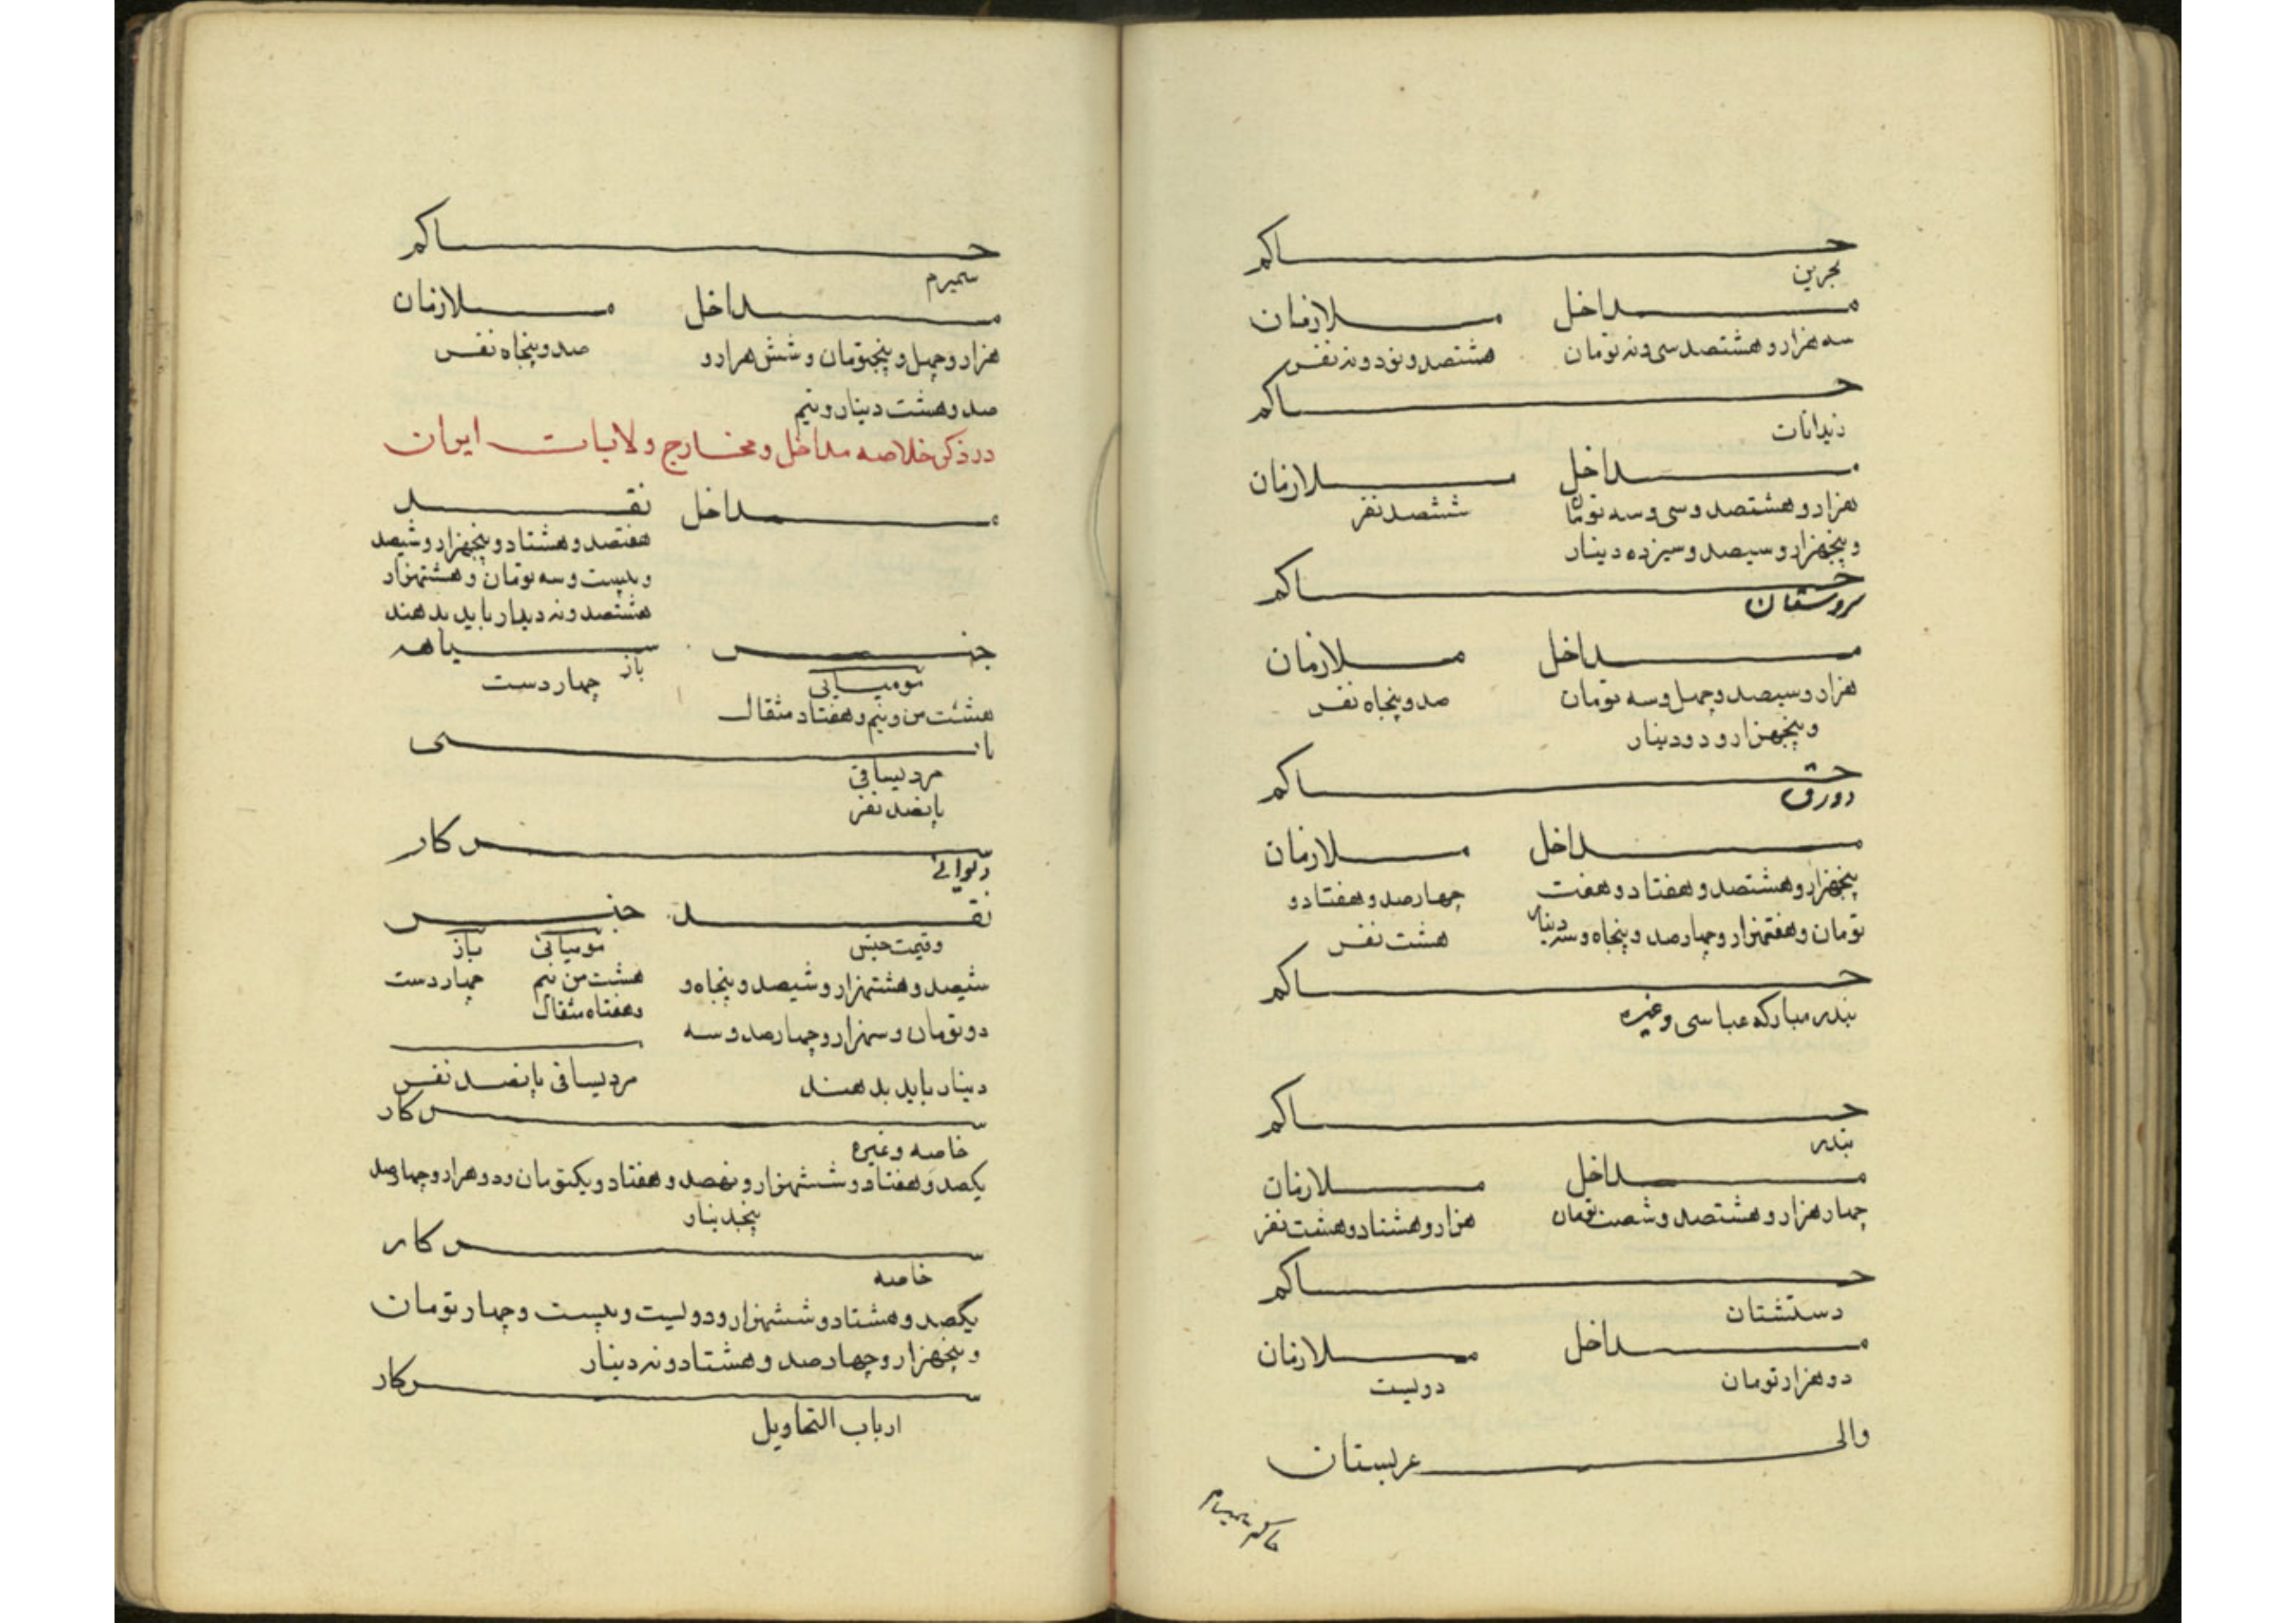 حاکم
بحرین
مداخل ملازمان
سه هزار و هشتصد سی و نه تومان هشتصد و نود و نه نفس
حاکم
زیدانات
مداخل ملازمان
هزار و هشتصد و سی و سه تومان ششصد نفر
و پنجهزار و سیصد و سیزده دینار
حاکم
سروستان
مداخل ملازمان
هزار و سیصد و چهل و سه تومان صد و پنجاه نفس
و پنجهزار و دو دینار
حاکم
دورق
مداخل ملازمان
پنجهزار و هشتصد و هفتاد و هفت چهارصد و هفتاد و
تومان و هفتهزار و چهارصد و پنجاه و سه دینار هشت نفس
حاکم
بندر مبارکه عباسی و غیره
حاکم
بندر
مداخل ملازمان
چهار هزار و هشتصد و شصت تومان هزار و هشتاد و هشت نفر
حاکم
دستشتان
مداخل ملازمان
دو هزار تومان دویست
والی عربستان
حاکم سمیرم
حاکم
سمیرم
مداخل ملازمان
هزار و چهل و پنجتومان و شش هزار و صد و پنجاه نفس
صد و هشت دینار و نیم
در ذکر خلاصه مداخل و مخارج ولایات ایران
مداخل نقد
هفتصد و هشتاد و پنجهزار و ششصد
و بیست و سه تومان و هشتهزار
هشتصد و نه دینار باید بدهند
جنس سیاهه
مومیائی باز چهار دست
هشت من و نیم و هفتاد مثقال
مرد یساقی
پانصد نفر
سرکار
دیوانی
نقد جنس
و قیمت جنس مومیائی باز
ششصد و هشتهزار و ششصد و پنجاه و هشت من نیم چهار دست
و هفتاه مثقال
دو تومان و سهزار و چهارصد و سه
دینار باید بدهند مرد یساقی پانصد نفس
سرکار
خاصه و غیره
یکصد و هفتاد و ششهزار و نهصد و هفتاد و یکتومان و دو هزار و چهارصد
پنجدینار
سرکار
خاصه
یکصد و هشتاد و ششهزار و دویست و بیست و چهار تومان
و پنجهزار و چهارصد و هشتاد و نه دینار
سرکار
ارباب التحاویل